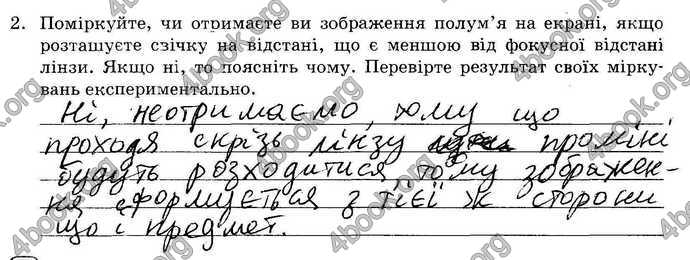 2. Поміркуйте, чи отримаєте ви зображення полум'я на екрані, якщо
розташуєте свічку на відстані, що є меншою від фокусної відстані
лінзи. Якщо ні, то поясніть чому. Перевірте результат своїх мірку-
вань експериментально.
Ні, неотримаємо, тому що
проходя скрізь лінзу проміні
будуть розходитися тому зображен-
ня формується з тієї ж сторони
що і предмет.
4book.org